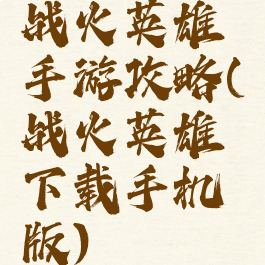 战火英雄
手游攻略(
战火英雄
下载手机
版)